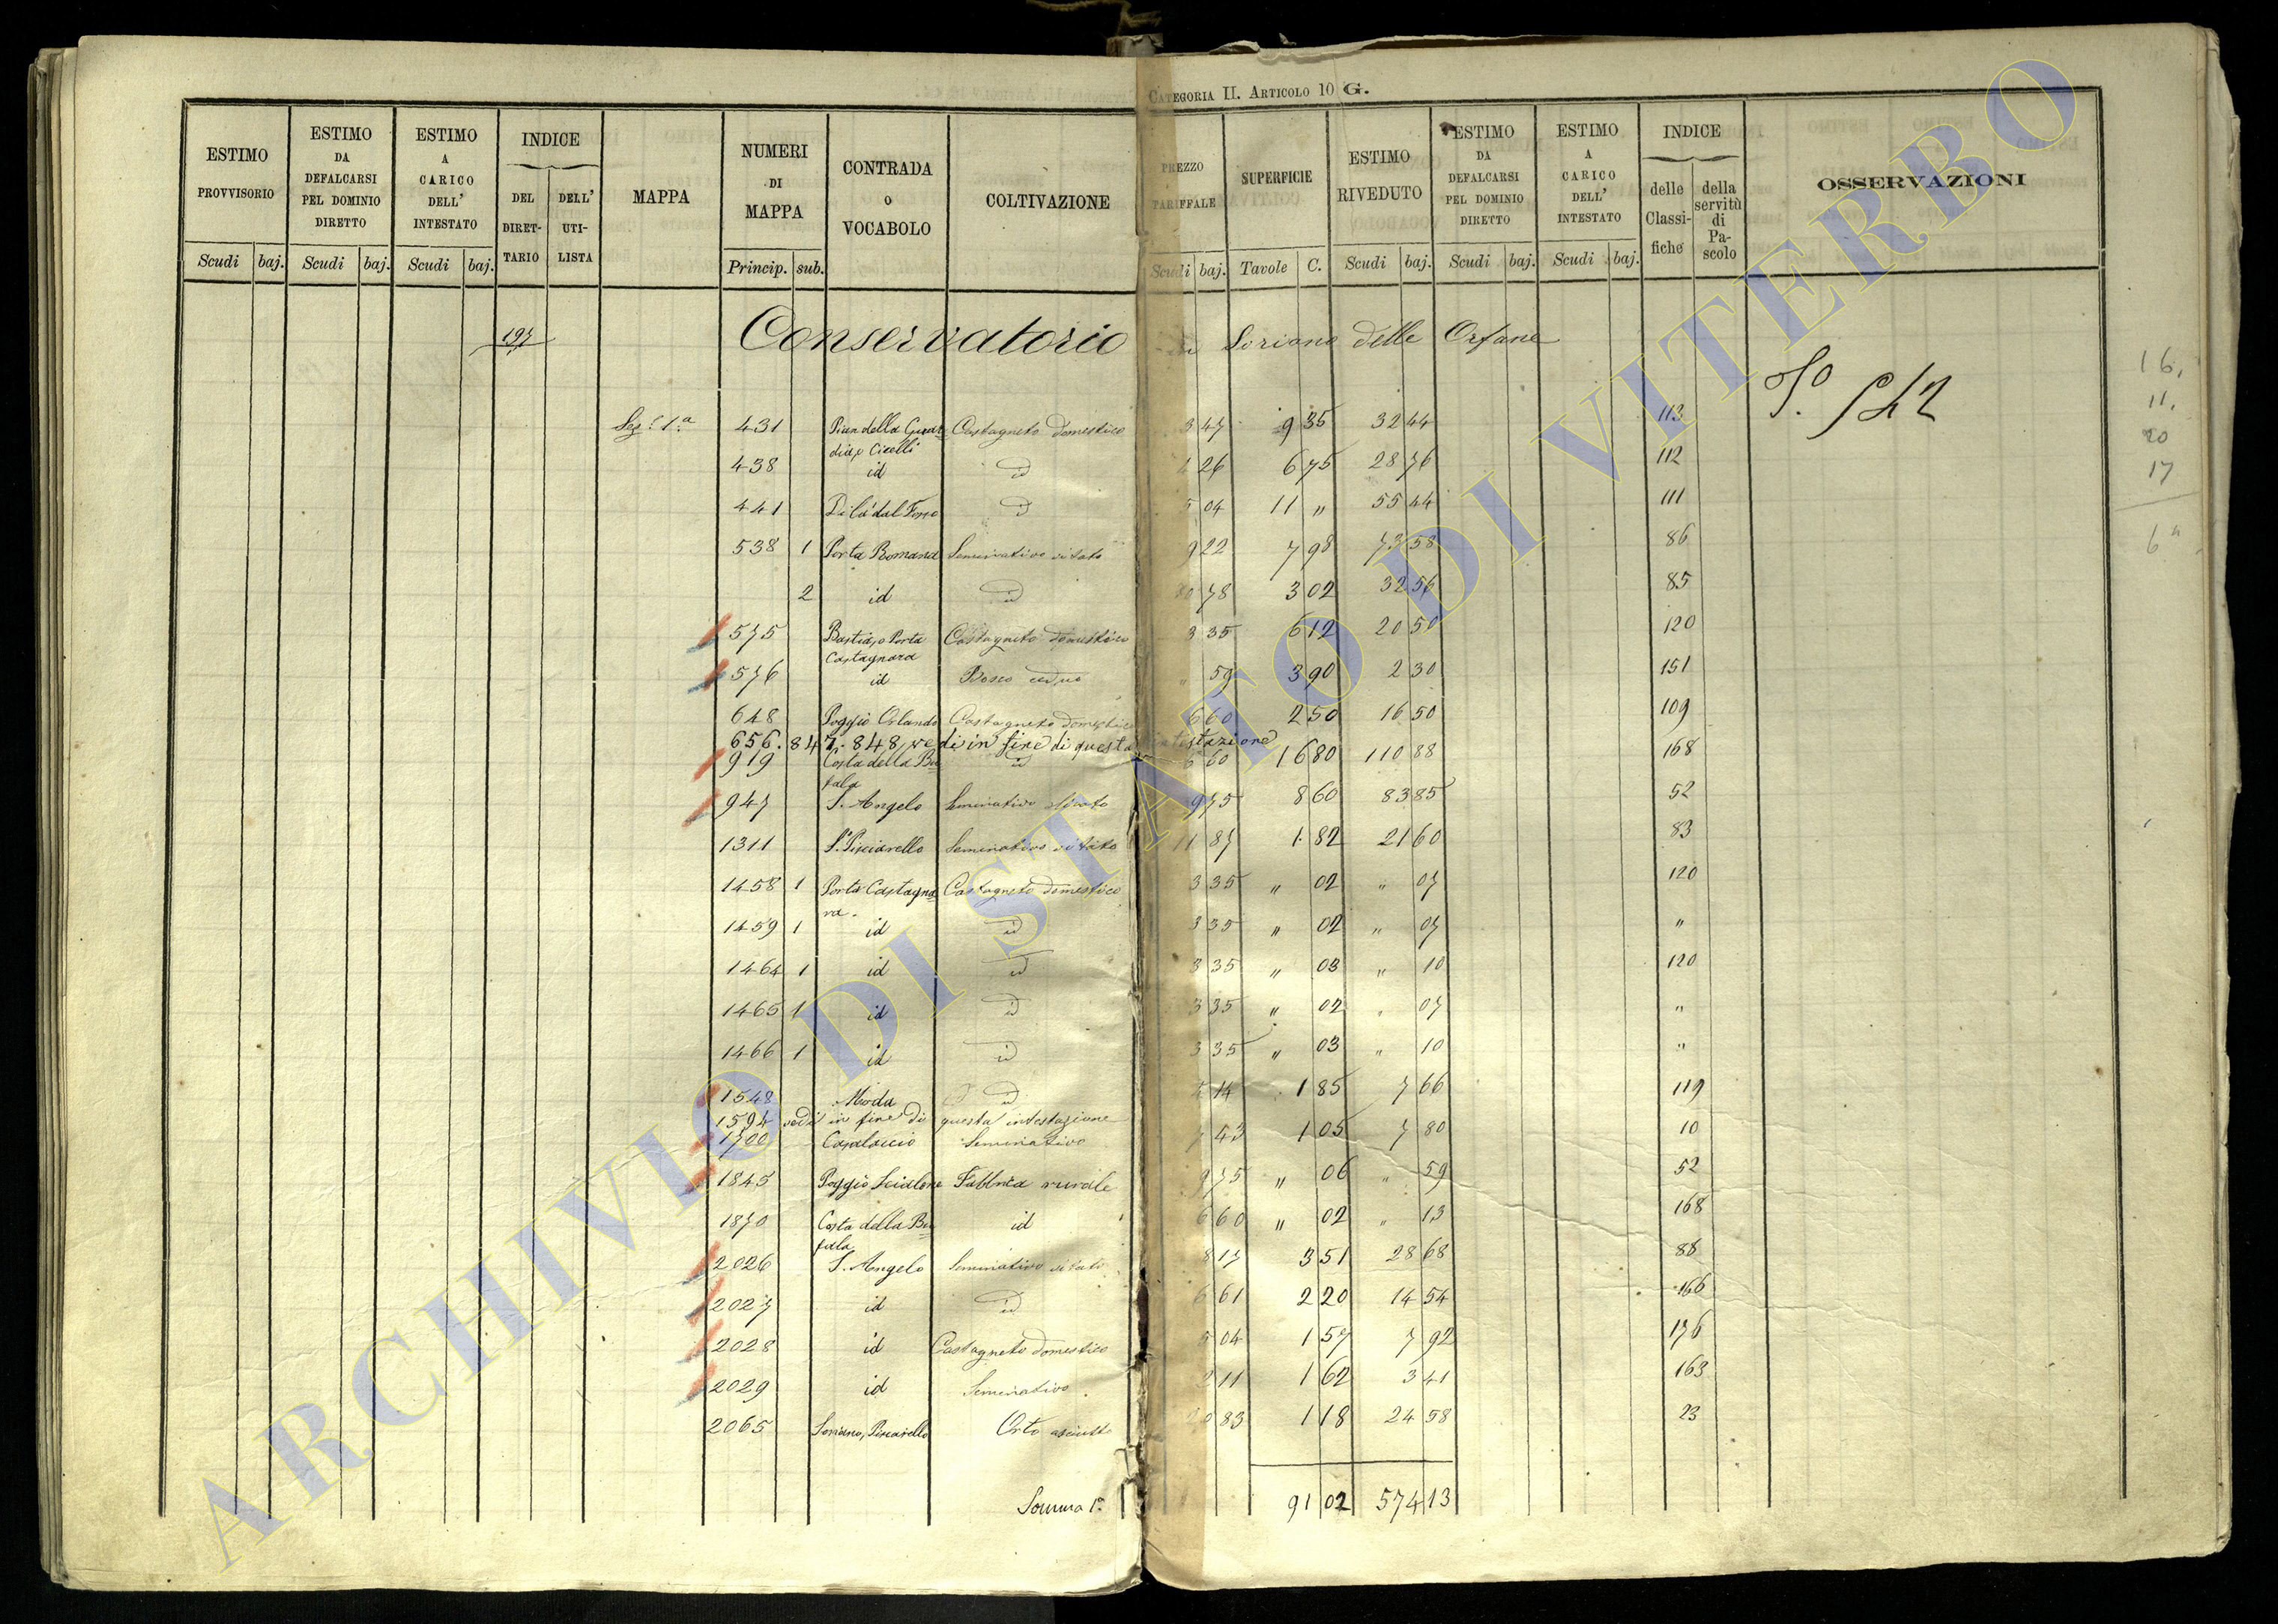 CATEGORIA II. ARTICOLO 10 G.
ESTIMO PROVVISORIO | ESTIMO DA DEFALCARSI PEL DOMINIO DIRETTO | ESTIMO A CARICO DELL' INTESTATO | INDICE DEL DIRETTARIO | DELL' UTILISTA | MAPPA | NUMERI DI MAPPA | CONTRADA O VOCABOLO | COLTIVAZIONE | PREZZO TARIFFALE | SUPERFICIE | ESTIMO RIVEDUTO | ESTIMO DA DEFALCARSI PEL DOMINIO DIRETTO | ESTIMO A CARICO DELL' INTESTATO | INDICE delle Classifiche | della servitù di Pascolo | OSSERVAZIONI
Scudi baj. Scudi baj. Scudi baj. Princip. sub. Scudi baj. Tavole C. Scudi baj. Scudi baj. Scudi baj.
197 Conservatorio in Soriano delle Orfane
Sez.e 1.a 431 Pian della Guardia, o Cicelli Castagneto domestico 3 47 9 35 32 44 113
438 id id 26 6 75 28 76 112
441 Di là dal Fosso id 5 04 11 " 55 44 111
538 1 Porta Romana Seminativo vitato 9 22 7 98 73 58 86
2 id id 10 78 3 02 32 56 85
575 Bastia, o Porta Castagnara Castagneto domestico 3 35 6 12 20 50 120
576 id Bosco ceduo " 59 3 90 2 30 151
648 Poggio Orlando Castagneto domestico 6 60 2 50 16 50 109
656. 847. 848, vedi in fine di questa intestazione
919 Costa della Bufala id 6 60 16 80 110 88 168
947 S. Angelo Seminativo vitato 9 75 8 60 83 85 52
1311 Pisciarello Seminativo vitato 11 87 1 82 21 60 83
1458 1 Porta Castagnara Castagneto domestico 3 35 " 02 " 07 120
1459 1 id id 3 35 " 02 " 07 "
1464 1 id id 3 35 " 03 " 10 120
1465 1 id id 3 35 " 02 " 07 "
1466 1 id id 3 35 " 03 " 10 "
1548 Moda id 14 1 85 7 66 119
1594 vedi in fine di questa intestazione
1700 Casalaccio Seminativo 7 43 1 05 7 80 10
1845 Poggio Scialone Fabbrica rurale 9 75 " 06 " 59 52
1870 Costa della Bufala id 6 60 " 02 " 13 168
2026 S. Angelo Seminativo vitato 8 17 3 51 28 68 88
2027 id id 6 61 2 20 14 54 166
2028 id Castagneto domestico 5 04 1 57 7 92 176
2029 id Seminativo 2 11 1 62 3 41 163
2065 Soriano, Pisciarello Orto asciutto 20 83 1 18 24 58 23
Somma 1.a 91 02 574 13
16.
11.
20
17
ARCHIVIO DI STATO DI VITERBO